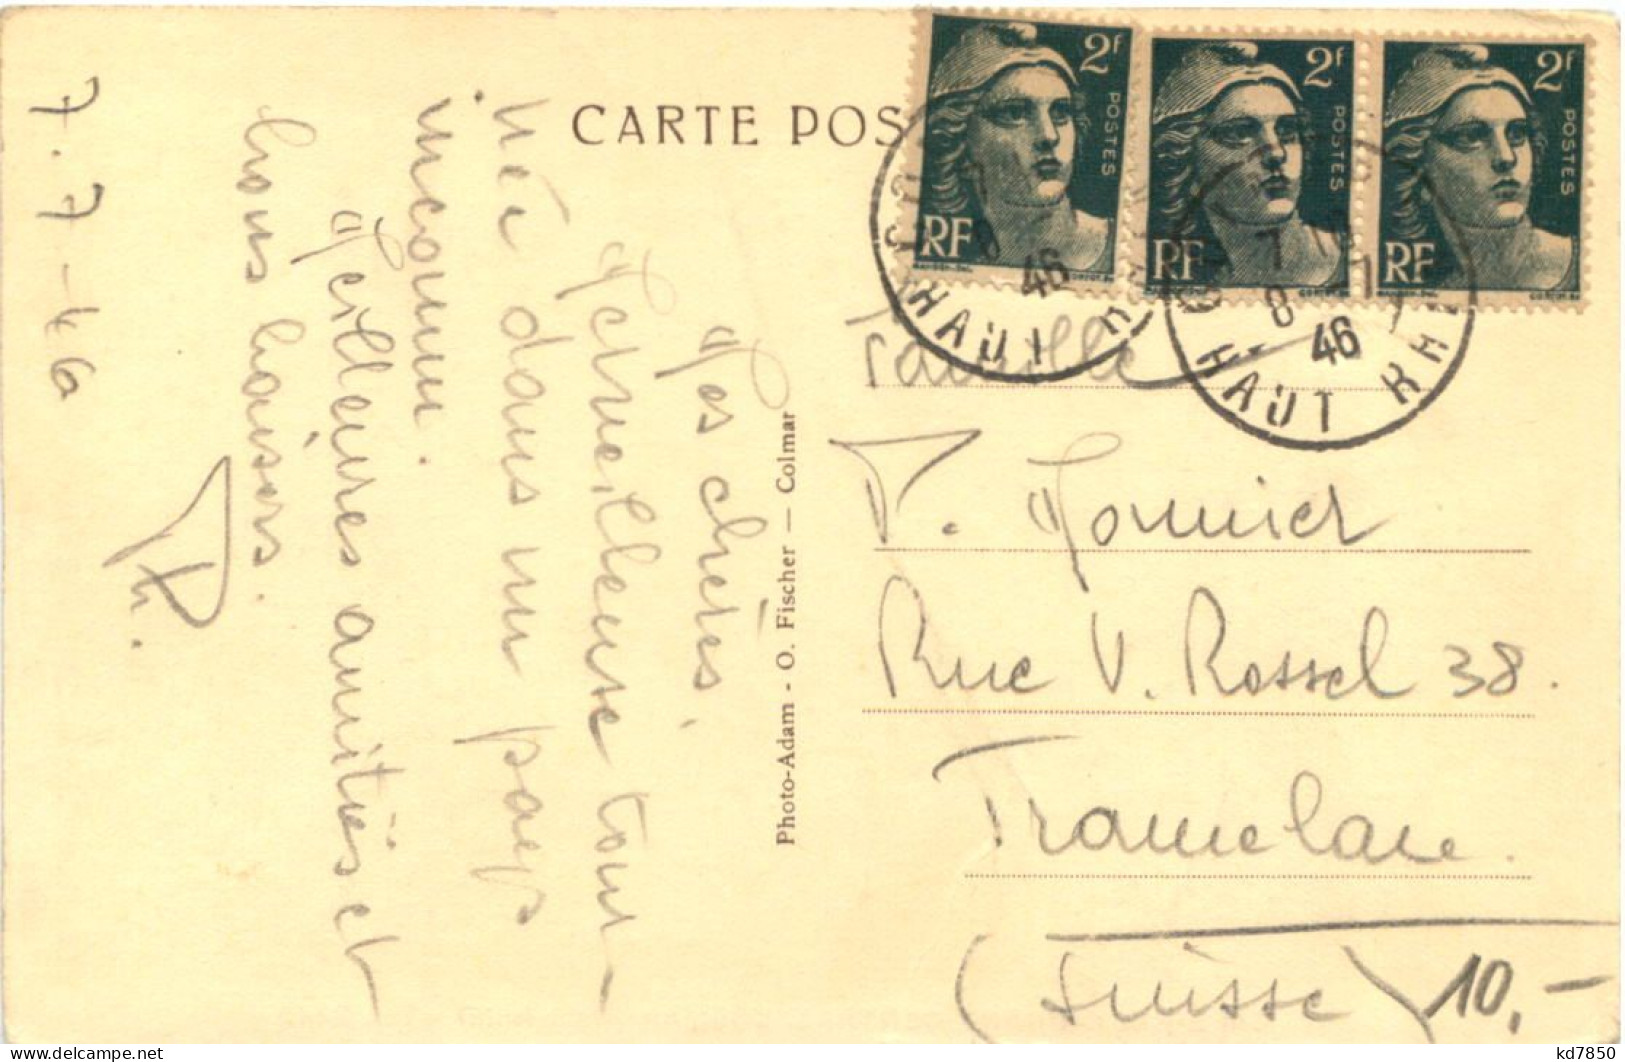 CARTE POS
2F
POSTES
RF
2F
POSTES
RF
2F
POSTES
RF
8
46
HAUT R
7
8 7
46
HAUT RH
Mes chéries,
Merveilleuse tour-
née dans un pays
inconnu.
Meilleures amitiés et
bons baisers.
Ph.
7.7-46
Photo-Adam - O. Fischer — Colmar
Famille
P. Monnier
Rue V. Rossel 38.
Tramelan.
(Suisse)
10,-
kd7850